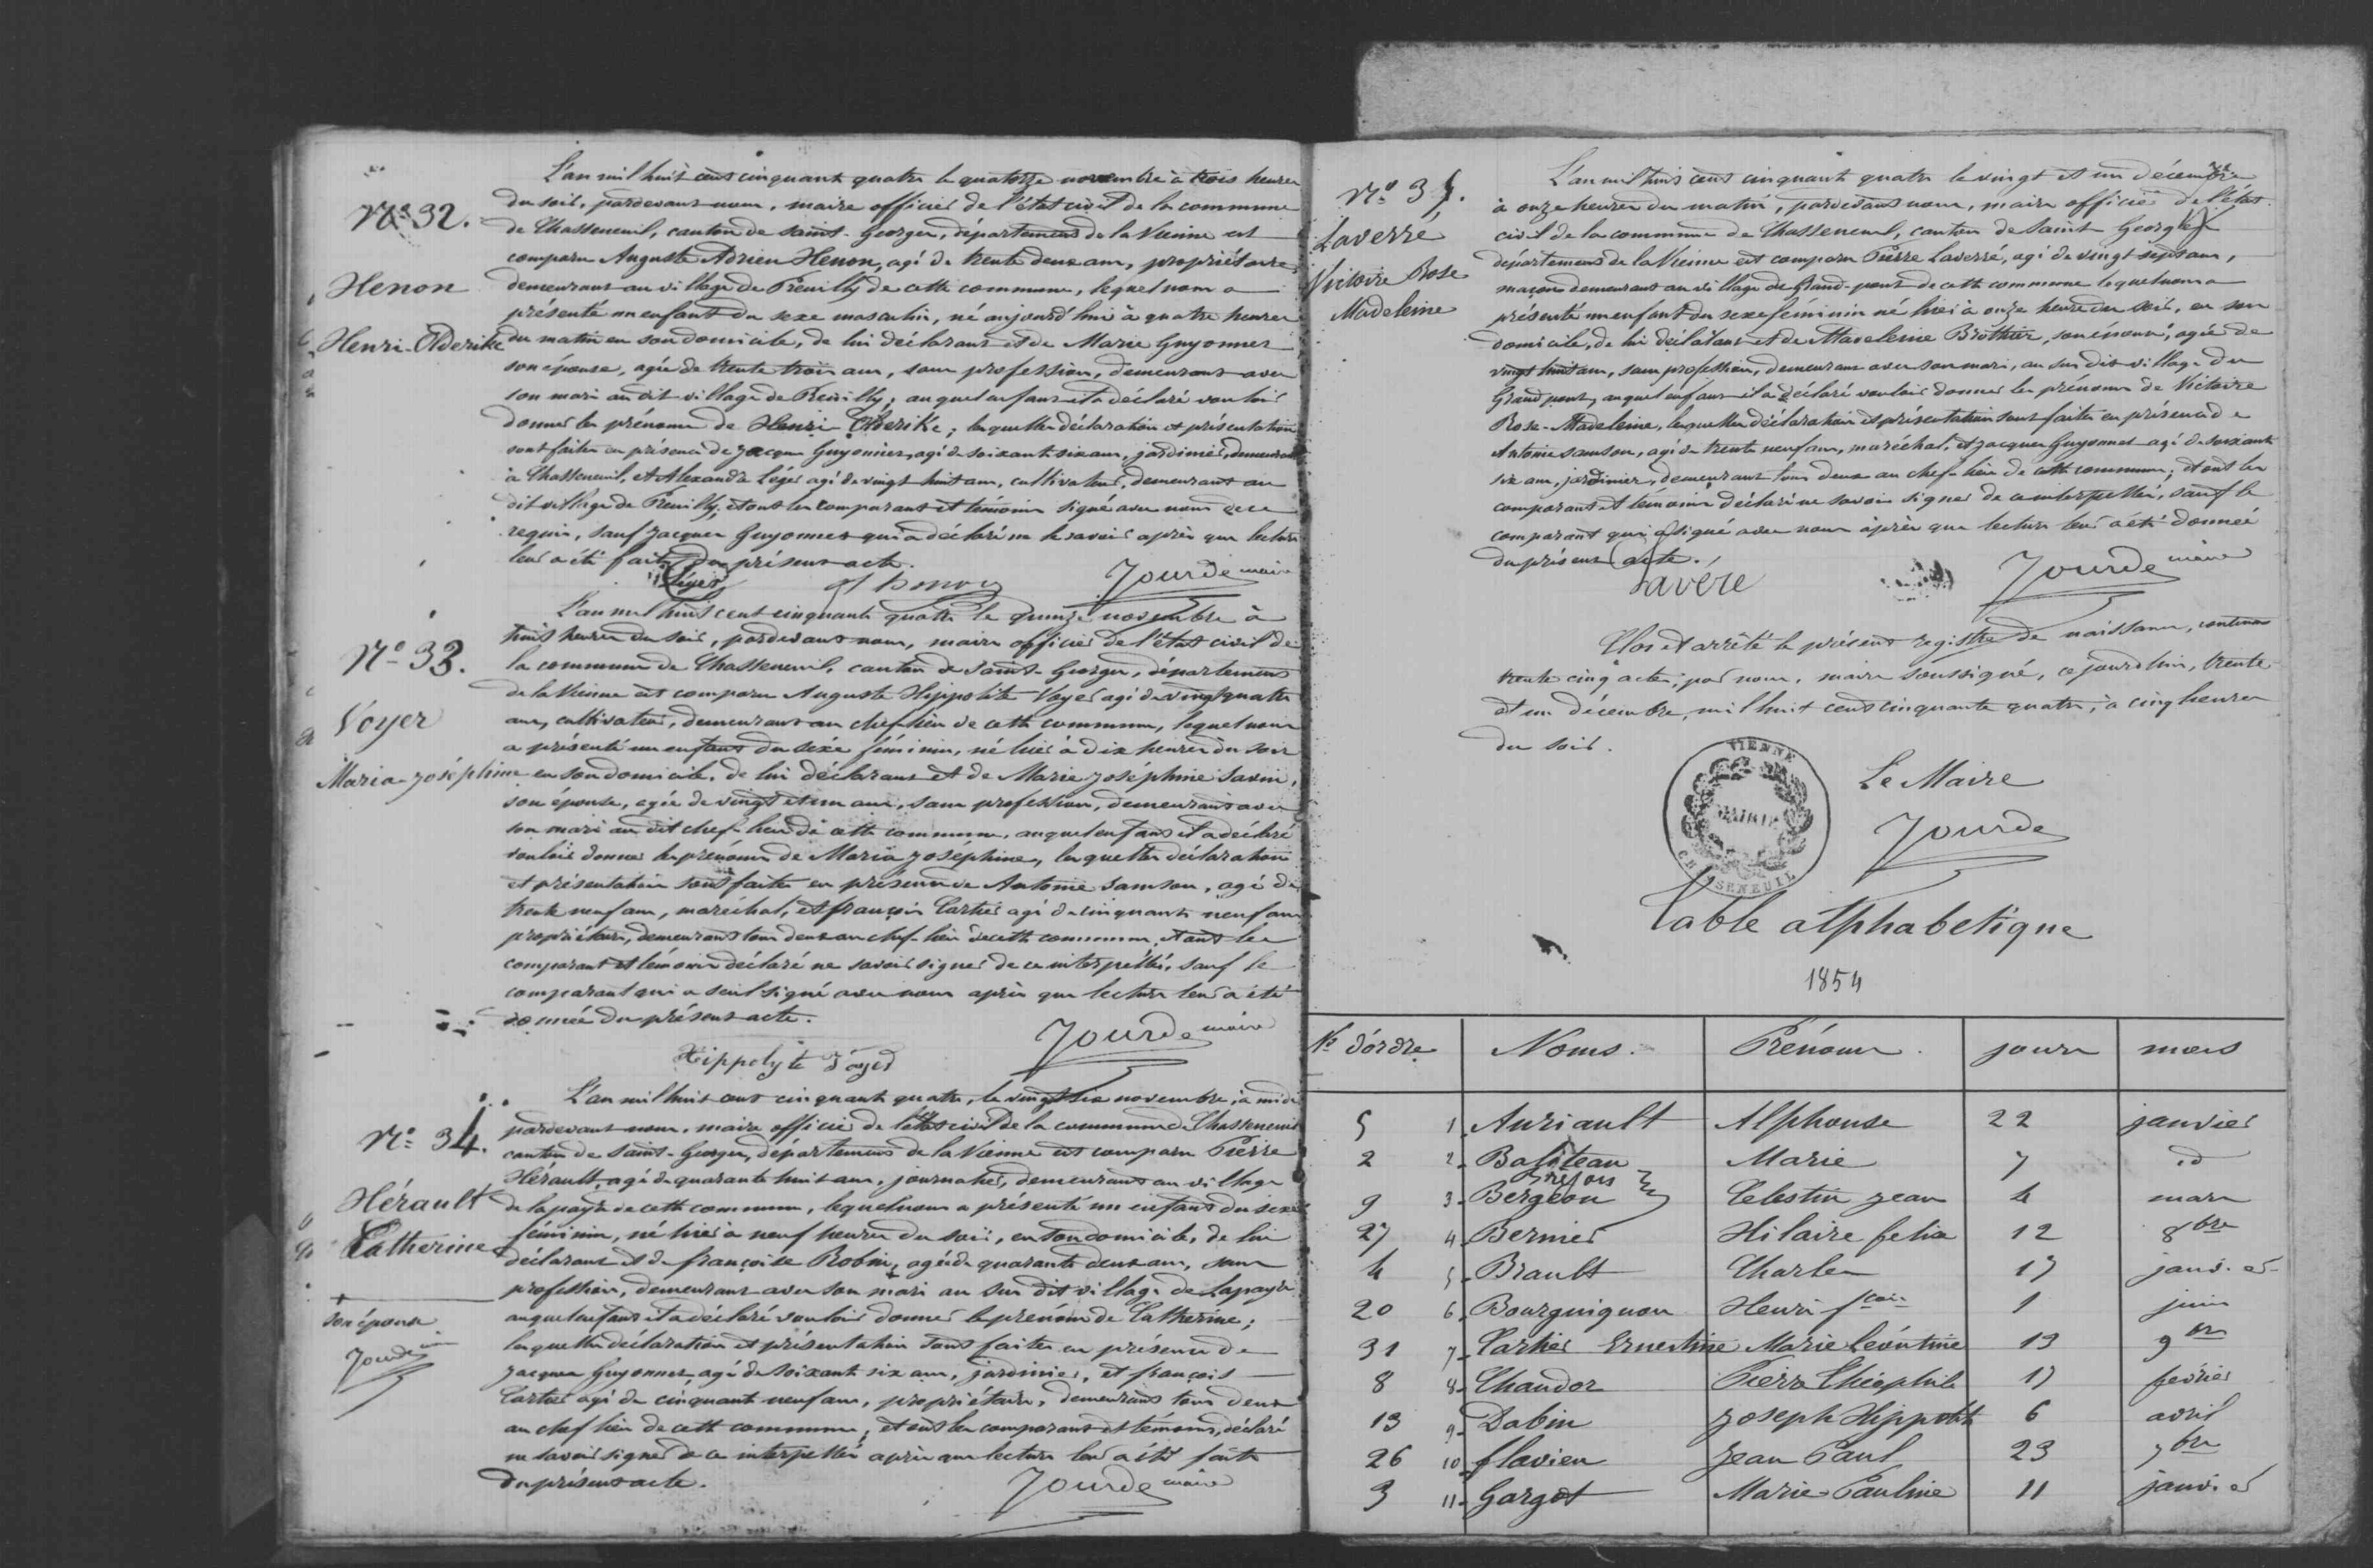 N° 32.
Henon
Henri-Olderike
L'an mil huit cent cinquante quatre le quatorze novembre à trois heures
du soir, pardevant nous, maire officier de l'état civil de la commune
de Chasseneuil, canton de Saint-Georges, département de la Vienne est
comparu Auguste Adrien Henon, agé de trente deux ans, propriétaire
demeurant au village de Preuilly de cette commune, lequel nous a
présenté un enfant du sexe masculin, né aujourd'hui à quatre heures
du matin en son domicile, de lui déclarant et de Marie Guyonnet
son épouse, agée de trente trois ans, sans profession, demeurant avec
son mari au dit village de Preuilly, auquel enfant il a déclaré vouloir
donner les prénoms de Henri-Olderike; lesquelles déclaration et présentation
sont faites en présence de Jacques Guyonnet, agé de soixante six ans, jardinier, demeurant
à Chasseneuil, et Alexandre Léger agé de vingt huit ans, cultivateur, demeurant au
dit village de Preuilly; et ont les comparant et témoins signé avec nous de ce
requis, sauf Jacques Guyonnet qui a déclaré ne le savoir après que lecture
leur a été faite du présent acte.
Léger Jourde maire
N° 33.
Voyer
Maria-Joséphine
L'an mil huit cent cinquante quatre le quinze novembre à
trois heures du soir, pardevant nous, maire officier de l'état civil de
la commune de Chasseneuil, canton de Saint-Georges, département
de la Vienne est comparu Auguste Hippolite Voyer agé de vingt quatre
ans, cultivateur, demeurant au chef-lieu de cette commune, lequel nous
a présenté un enfant du sexe féminin, né hier à dix heures du soir
en son domicile, de lui déclarant et de Marie Joséphine Savin,
son épouse, agée de vingt et un ans, sans profession, demeurant avec
son mari au dit chef-lieu de cette commune, auquel enfant il a déclaré
vouloir donner les prénoms de Maria Joséphine, lesquelles déclaration
et présentation sont faites en présence de Antoine Samson, agé de
trente neuf ans, maréchal, et françois Cartier agé de cinquante neuf ans
propriétaire, demeurant tous deux au chef-lieu de cette commune, et ont les
comparant et témoins déclaré ne savoir signer de ce interpellés, sauf le
comparant qui a seul signé avec nous après que lecture leur a été
donnée du présent acte.
Hippolyte Voyer Jourde maire
N° 34.
Hérault
Catherine
L'an mil huit cent cinquante quatre, le vingt six novembre, à midi
pardevant nous, maire officier de l'état civil de la commune de Chasseneuil
canton de Saint-Georges, département de la Vienne est comparu Pierre
Hérault, agé de quarante huit ans, journalier, demeurant au village
de lapayre de cette commune, lequel nous a présenté un enfant du sexe
féminin, né hier à neuf heures du soir, en son domicile, de lui
déclarant et de françoise Robin, + agée de quarante deux ans, sans
profession, demeurant avec son mari au sus dit village de Lapayre
auquel enfant il a déclaré vouloir donner le prénom de Catherine;
lesquelles déclaration et présentation sont faites en présence de
Jacques Guyonnet, agé de soixante six ans, jardinier, et françois
Cartier agé de cinquante neuf ans, propriétaire, demeurant tous deux
au chef lieu de cette commune; et ont les comparant et témoins, déclaré
ne savoir signer de ce interpellés après que lecture leur a été faite
du présent acte.
Jourde maire
+
son épouse
Jourde
N° 35.
Laverre
Victoire Rose
Madeleine
L'an mil huit cent cinquante quatre le vingt et un décembre
à onze heures du matin, pardevant nous, maire officier de l'état
civil de la commune de Chasseneuil, canton de Saint Georges
département de la Vienne est comparu Pierre Laverré, agé de vingt sept ans,
maçon demeurant au village de Grand-pont de cette commune lequel nous a
présenté un enfant du sexe féminin né hier à onze heures du soir, en son
domicile, de lui déclarant et de Madeleine Brothier, son épouse, agée de
vingt huit ans, sans profession, demeurant avec son mari, au sus dit village du
Grand pont, auquel enfant il a déclaré vouloir donner les prénoms de Victoire
Rose-Madeleine, lesquelles déclaration et présentation sont faites en présence de
Antoine Samson, agé de trente neuf ans, maréchal, et Jacques Guyonnet agé de soixante
six ans, jardinier, demeurant tous deux au chef-lieu de cette commune; et ont les
comparant et témoins déclaré ne savoir signer de ce interpellés, sauf le
comparant qui a signé avec nous après que lecture leur a été donnée
du présent acte.
Lavère Jourde maire
Clos et arrêté le présent registre de naissance, contenant
trente cinq actes, par nous, maire soussigné, ce jourd'hui, trente
et un décembre, mil huit cent cinquante quatre, à cinq heures
du soir.
VIENNE
MAIRIE
CHASSENEUIL
Le Maire
Jourde
Table alphabetique
1854
N° d'ordre Noms. Prénoms. jours mois
5 1. Auriault Alphonse 22 janvier
2 2. Baliteau Marie 7 id
9 3. Bergeon Celestin Jean 4 mars
27 4. Bernier Hilaire felix 12 8bre
4 5. Brault Charles 17 janvier
20 6. Bourguignon Henri fcois 1 juin
31 7. Cartier Ernestine Marie Léontine 13 9bre
8 8. Chaudor Pierre Théophile 17 février
13 9. Dabin Joseph Hippolite 6 avril
26 10. flavien Jean Paul 23 7bre
3 11. Gargot Marie-Pauline 11 janvier